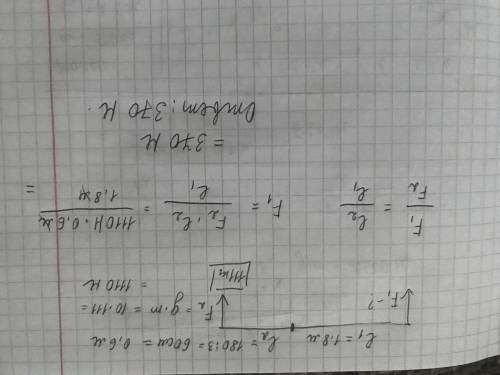 l₁ = 1.8 м    l₂ = 180:3 = 60 см = 0,6 м
F₁ - ?    F₂ = g·m = 10·111 =
111 кг    = 1110 Н
F₁/F₂ = l₂/l₁    F₁ = F₂·l₂/l₁ = 1110 Н · 0,6 м/1,8 м =
= 370 Н
Ответ: 370 Н.